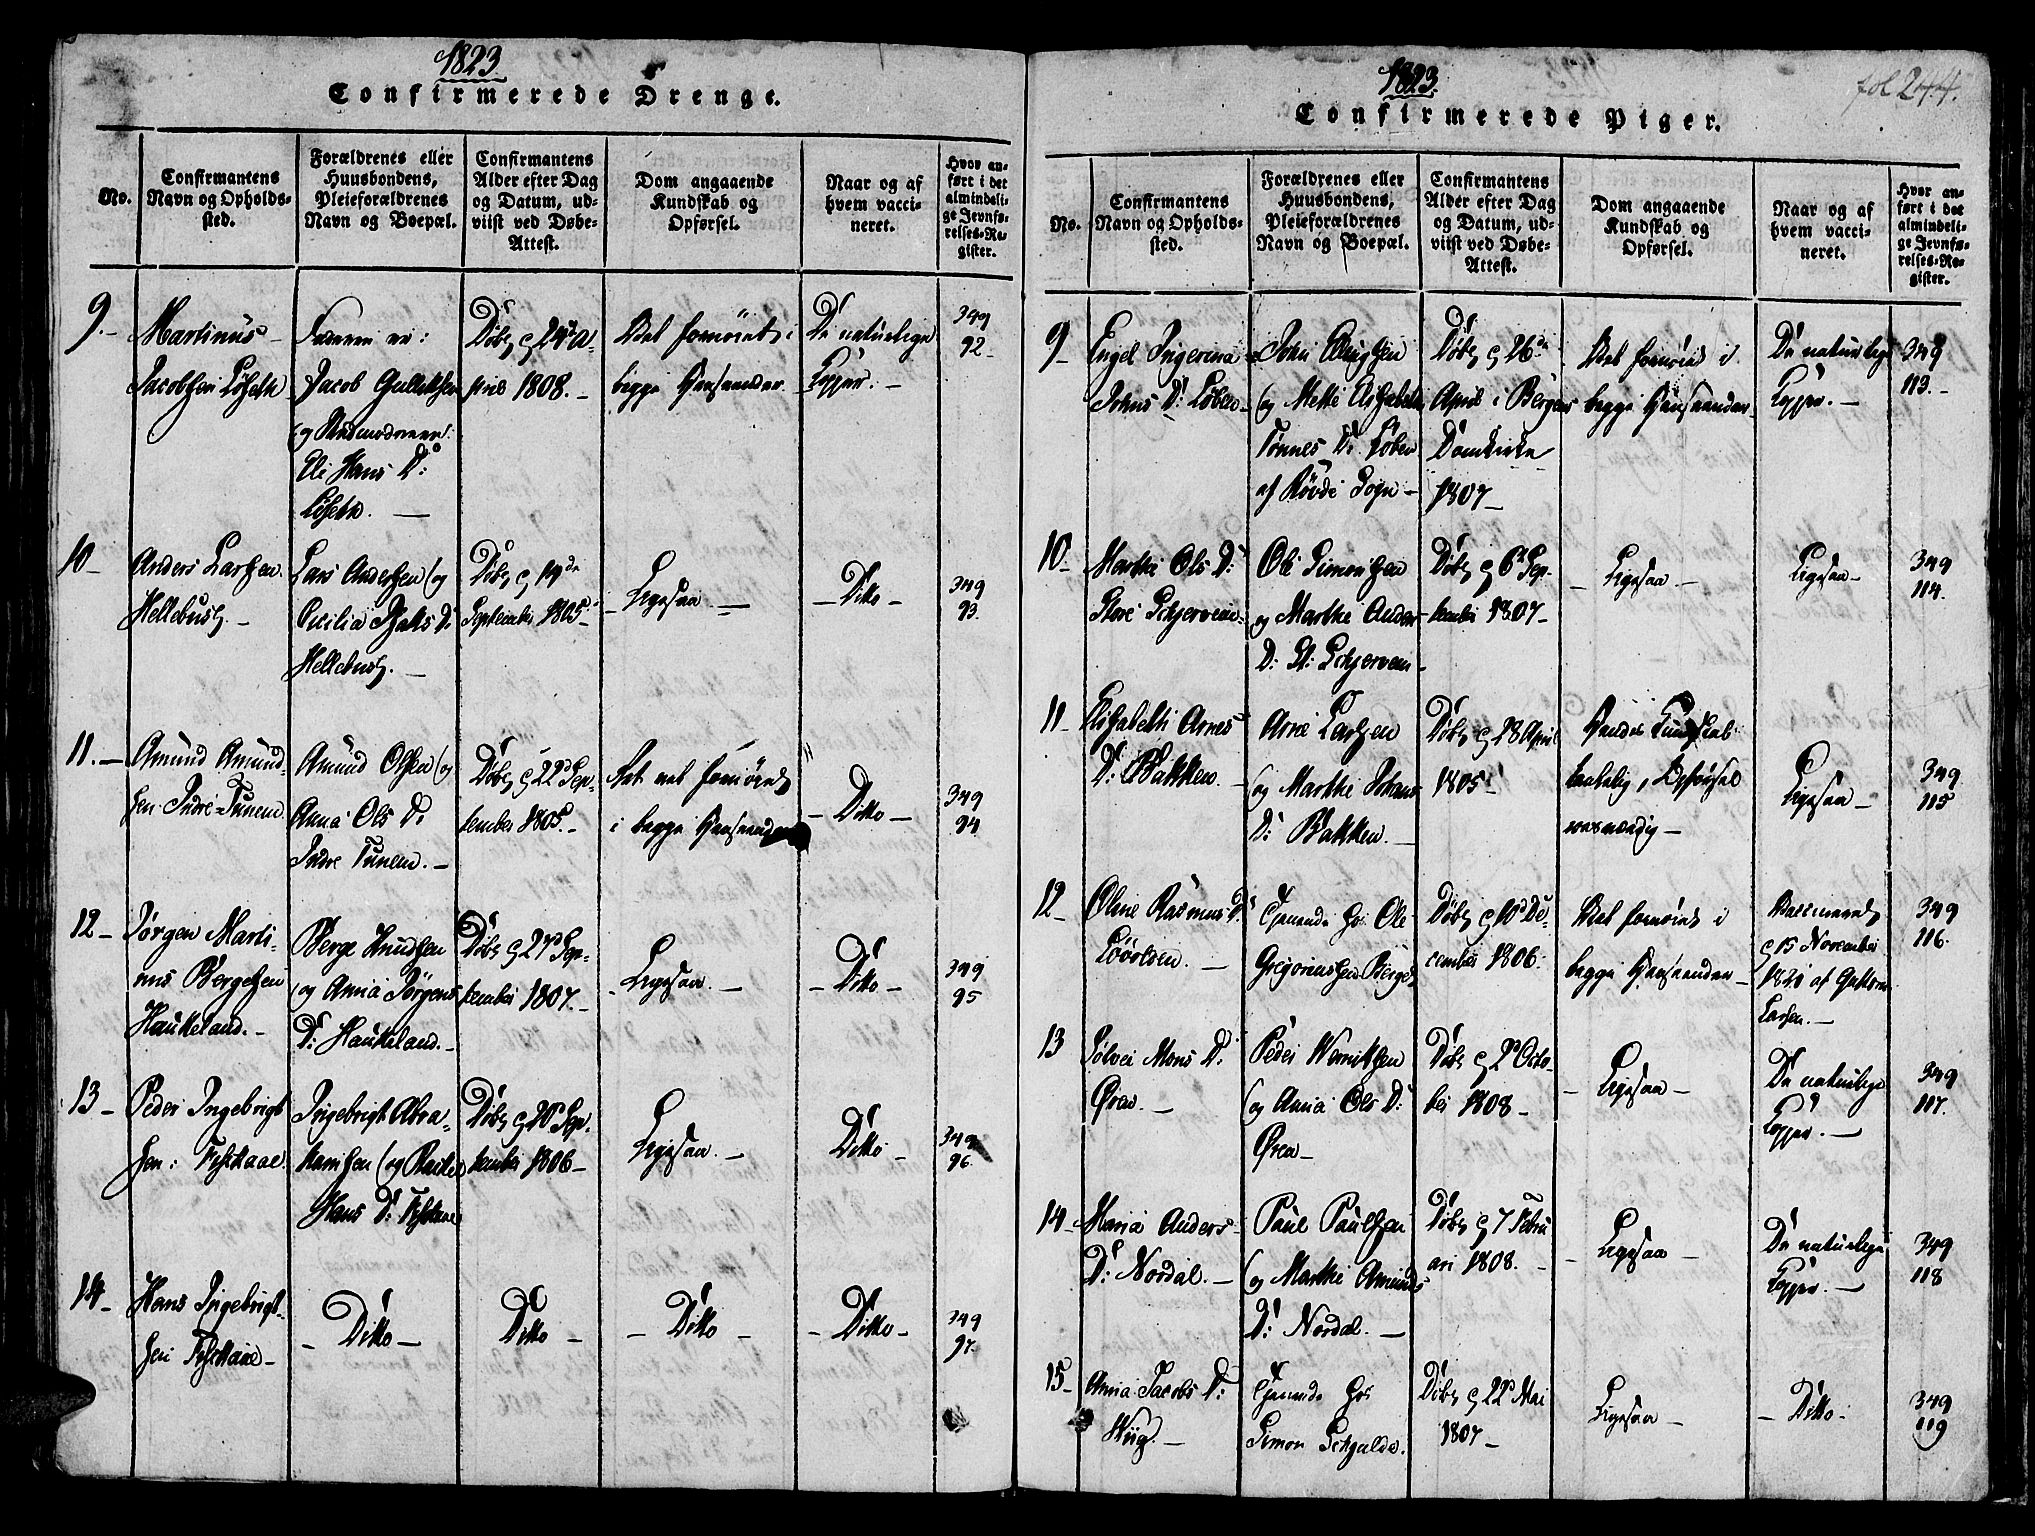 1823
Confirmerede Drenge.
No.
Confirmantens
Navn og Opholds-
sted.
Forældrenes eller
Huusbondens,
Pleieforældrenes
Navn og Boepæl.
Confirmantens
Alder efter Dag
og Datum, ud-
viist ved Døbe-
Attest.
Dom angaaende
Kundskab og
Opførsel.
Naar og af
hvem vacci-
neret.
Hvor an-
ført i det
almindeli-
ge Jevnfø-
relses-Re-
gister.
9.-
Martinus
Jacobsen
Faderen er:
Jacob
og
Eli Hans D:
Døbt d 24de A-
pril 1808.-
Vel fornøiet i
begge Henseender
De naturlige
Kopper.-
349
92-
10-
Anders Larsen
Lars Andersen og
Cecilia D:
Døbt d 14de
September 1805-
Ligesaa -
- Ditto -
349
93.
11.-
Amund Amund-
sen Indre-Tunem
Amund Olsen og
Anna Ols D:
Indre Tunem.-
Døbt d 22d Sep-
tember 1805.-
vel fornøiet
i begge Henseender
- Ditto -
349
94
12-
Jørgen Marti-
nus Bergesen
Haukeland.-
Berge Knudsen
og Anna Jørgens
D: Haukeland.-
Døbt d 27d Sep-
tember 1807.-
- Ligesaa.-
- Ditto -
349
95
13-
Peder Ingebrigt
sen
Ingebrigt Abra-
hamsen og
Hans D:
Døbt d 20d Sep-
tember 1806-
Ligesaa.-
Ditto -
349
96.
14-
Hans Ingebrigt-
sen
- Ditto -
Ditto -
- Ditto -
- Ditto -
349
97.
1823.
fol 244.
Confirmerede Piger.
No.
Confirmantens
Navn og Opholds-
sted.
Forældrenes eller
Huusbondens,
Pleieforældrenes
Navn og Boepæl.
Confirmantens
Alder efter Dag
og Datum, ud-
viist ved Døbe-
Attest.
Dom angaaende
Kundskab og
Opførsel.
Naar og af
hvem vacci-
neret.
Hvor an-
ført i det
almindeli-
ge Jevnfø-
relses-Re-
gister.
9-
Engel Ingerina
Johns D: Løben-
John
og Mette Elisabeth
Tønnes D: Løben
af Røvde Sogn-
Døbt d 26de
April i Bergens
Domkirke
1807-
Vel fornøiet i
begge Henseender
De naturlige
Kopper.-
349
113.-
10-
Marthe Ols D:
Store Schjervem-
Ole Simonsen
og Marthe Anders
D: St: Schjervem-
Døbt d 6d Sep-
tember 1807-
- Ligesaa -
Ligesaa-
349
114.
11-
Elisabeth Arnes
D: Bakken.-
Arne Larsen
og Marthe Johans
D: Bakken.-
Døbt d 28 April
1805-
Kundskab
taalelig, Opførsel
-
Ligesaa-
349
115
12-
Oline Rasmus D:
Tjenende hos Ole
Gregoriussen
Døbt d 10d De-
cember 1806.
Vel fornøiet i
begge Henseender-
Vaccineret
d 15 November
af
Larsen.-
349
116.
13
Mons D:
Ørew.-
Peder
og Anna Ols D:
Ørew-
Døbt d 2d Octo-
ber 1808-
- Ligesaa-
De naturlige
Kopper.-
349
117.
14-
Maria Anders
D: Nordal.-
Paul Paulsen
og Marthe Amunds
D: Nordal.-
Døbt d 7 Febru
ari 1808.-
- Ligesaa -
De naturlige
Kopper.-
349
118
15-
Anna Jacobs D:
Wiig.-
Tjenende hos
Simon
Døbt d 22d Mai
1807-
Ligesaa -
- Ditto-
349
119